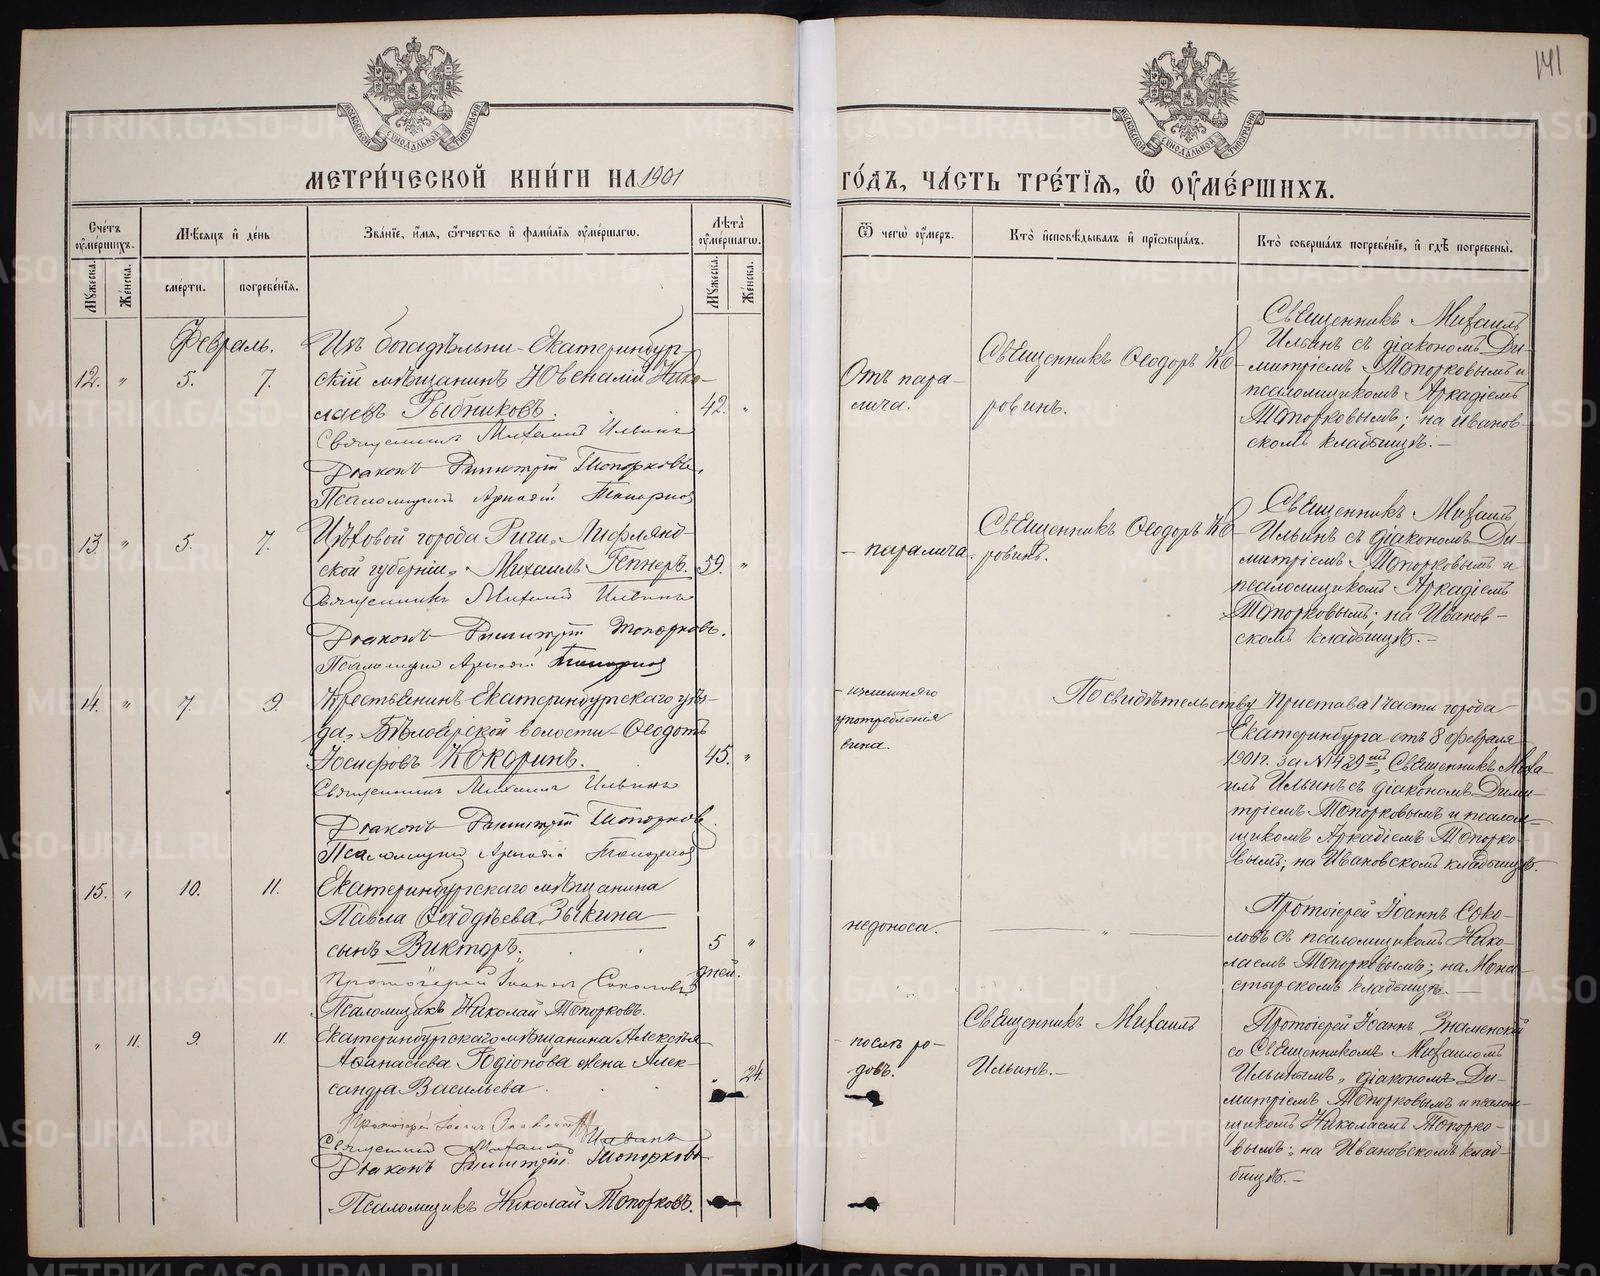 141
МОСКОВСКОЙ СѴНОДАЛЬНОЙ ТИПОГРАФІИ
МОСКОВСКОЙ СѴНОДАЛЬНОЙ ТИПОГРАФІИ
МЕТРИ́ЧЕСКОЙ КНИ́ГИ НА 1901
ГО́ДЪ, ЧА́СТЬ ТРЕ́ТІѦ, Ѡ҆ ОУ҆МЕ́РШИХЪ.
Сче́тъ оу҆ме́ршихъ.
Мꙋжеска.
Же́нска.
Мѣ́сѧцъ и҆ де́нь
сме́рти.
погребе́нїѧ.
Зва́нїе, и҆́мѧ, ѻ҆́тчество и҆ фами́лїѧ оу҆ме́ршагѡ.
Лѣ́та оу҆ме́ршагѡ.
Мꙋжеска.
Же́нска.
Ѿ чегѡ̀ оу҆́меръ.
Кто̀ и҆сповѣ́дывалъ и҆ прїѡбща́лъ.
Кто̀ соверша́лъ погребе́нїе, и҆ гдѣ̀ погребены̀.
Февраль.
12. " 5. 7.
Изъ богадѣльни - Екатеринбург-
скій мѣщанинъ Ювеналій Нико-
лаевъ Рыбниковъ.
42. "
Священникъ Михаилъ Ильинъ
Діаконъ Димитрій Топорковъ.
Псаломщикъ Аркадій Топорков
Отъ пара-
лича.
Священникъ Ѳеодоръ Ко-
ровинъ.
Священникъ Михаилъ
Ильинъ съ діакономъ Ди-
митріемъ Топорковымъ и
псаломщикомъ Аркадіемъ
Топорковымъ; на Иванов-
скомъ кладбищѣ.-
13. " 5. 7.
Цѣховой города Риги, Лифлянд-
ской губерніи, Михаилъ Геннеръ.
59. "
Священникъ Михаилъ Ильинъ
Діаконъ Димитрій Топорковъ.
Псаломщикъ Аркадій Топорков
- паралича.
Священникъ Ѳеодоръ Ко-
ровинъ.
Священникъ Михаилъ
Ильинъ съ діакономъ Ди-
митріемъ Топорковымъ и
псаломщикомъ Аркадіемъ
Топорковымъ; на Иванов-
скомъ кладбищѣ.-
14. " 7. 9.
Крестьянинъ Екатеринбургскаго уѣз-
да, Бѣлоярской волости - Ѳеодотъ
Іосифовъ Кокоринъ.
45. "
Священникъ Михаилъ Ильинъ
Діаконъ Димитрій Топорков.
Псаломщикъ Аркадій Топорков
- излишняго
употребленія
вина.
По свидѣтельству Пристава 1 части города
Екатеринбурга отъ 8 февраля
1901 г. за № 1429мъ, Священникъ Миха-
илъ Ильинъ съ діакономъ Дими-
тріемъ Топорковымъ и псалом-
щикомъ Аркадіемъ Топорко-
вымъ; на Ивановскомъ кладбищѣ.
15. " 10. 11.
Екатеринбургскаго мѣщанина
Павла Ѳаддѣева Зыкина
сынъ Викторъ.
5 "
дней.
Протоіерей Іоаннъ Соколовъ
Псаломщикъ Николай Топорковъ.
недоноса.
"
Протоіерей Іоаннъ Соко-
ловъ съ псаломщикомъ Нико-
лаемъ Топорковымъ; на Мона-
стырскомъ кладбищѣ.
" 11. 9. 11.
Екатеринбургскаго мѣщанина Алексѣя
Аѳанасіева Родіонова жена Алек-
сандра Васильева
" 24.
Протоіерей Іоаннъ Знаменскій
Священникъ Михаилъ Ильинъ
Діаконъ Димитрій Топорковъ
Псаломщикъ Николай Топорковъ.
- послѣ ро-
довъ.
Священникъ Михаилъ
Ильинъ.-
Протоіерей Іоаннъ Знаменскій
со Священникомъ Михаиломъ
Ильинымъ, діакономъ Ди-
митріемъ Топорковымъ и псалом-
щикомъ Николаемъ Топорко-
вымъ; на Ивановскомъ клад-
бищѣ.-
METRIKI.GASO-URAL.RU